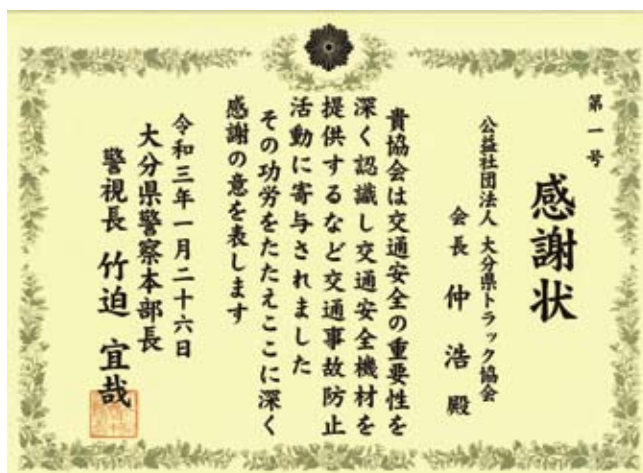 第一号
感謝状
公益社団法人 大分県トラック協会
会長 仲 浩 殿
貴協会は交通安全の重要性を
深く認識し交通安全機材を
提供するなど交通事故防止
活動に寄与されました
その功労をたたえここに深く
感謝の意を表します
令和三年一月二十六日
大分県警察本部長
警視長 竹迫 宜哉